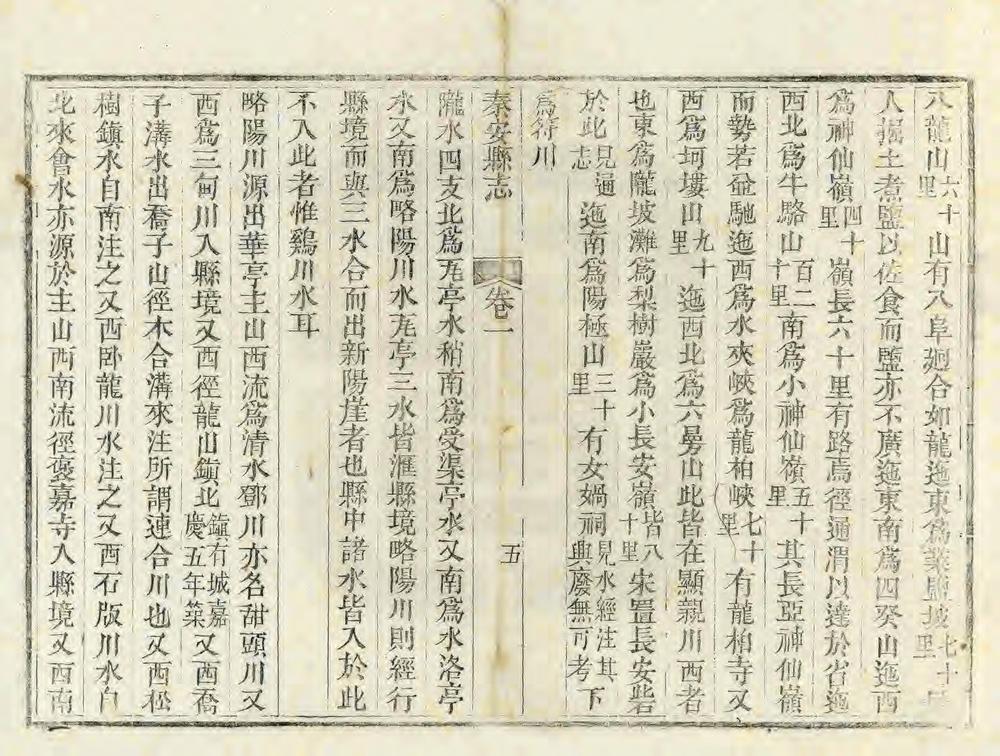 八龍山六十里山有八阜廻合如龍迤東爲業鹽坡七十里
人掘土煮鹽以佐食而鹽亦不廣迤東南爲四癸山迤西
爲神仙嶺四十里嶺長六十里有路焉徑通渭以達於省迤
西北爲牛駱山百二十里南爲小神仙嶺五十里其長亞神仙嶺
而勢若竝馳迤西爲水夾峽爲龍柏峽七十里有龍柏寺又
西爲坷塿山九十里迤西北爲六曷山此皆在顯親川西者
也東爲隴坡灘爲梨樹巖爲小長安嶺皆八十里宋置長安砦
於此見通志迤南爲陽極山三十里有女媧祠見水經注其興廢無可考下
爲符川
秦安縣志
卷一
五
隴水四支北爲瓦亭水稍南爲受渠亭水又南爲水洛亭
水又南爲略陽川水瓦亭三水皆滙縣境略陽川則經行
縣境而與三水合而出新陽崖者也縣中諸水皆入於此
不入此者惟鷄川水耳
略陽川源出華亭主山西流爲清水鄧川亦名甜頭川又
西爲三甸川入縣境又西徑龍山鎮北鎮有城嘉慶五年築又西喬
子溝水出喬子山徑木合溝來注所謂連合川也又西松
樹鎮水自南注之又西臥龍川水注之又西石版川水自
北來會水亦源於主山西南流徑褒嘉寺入縣境又西南